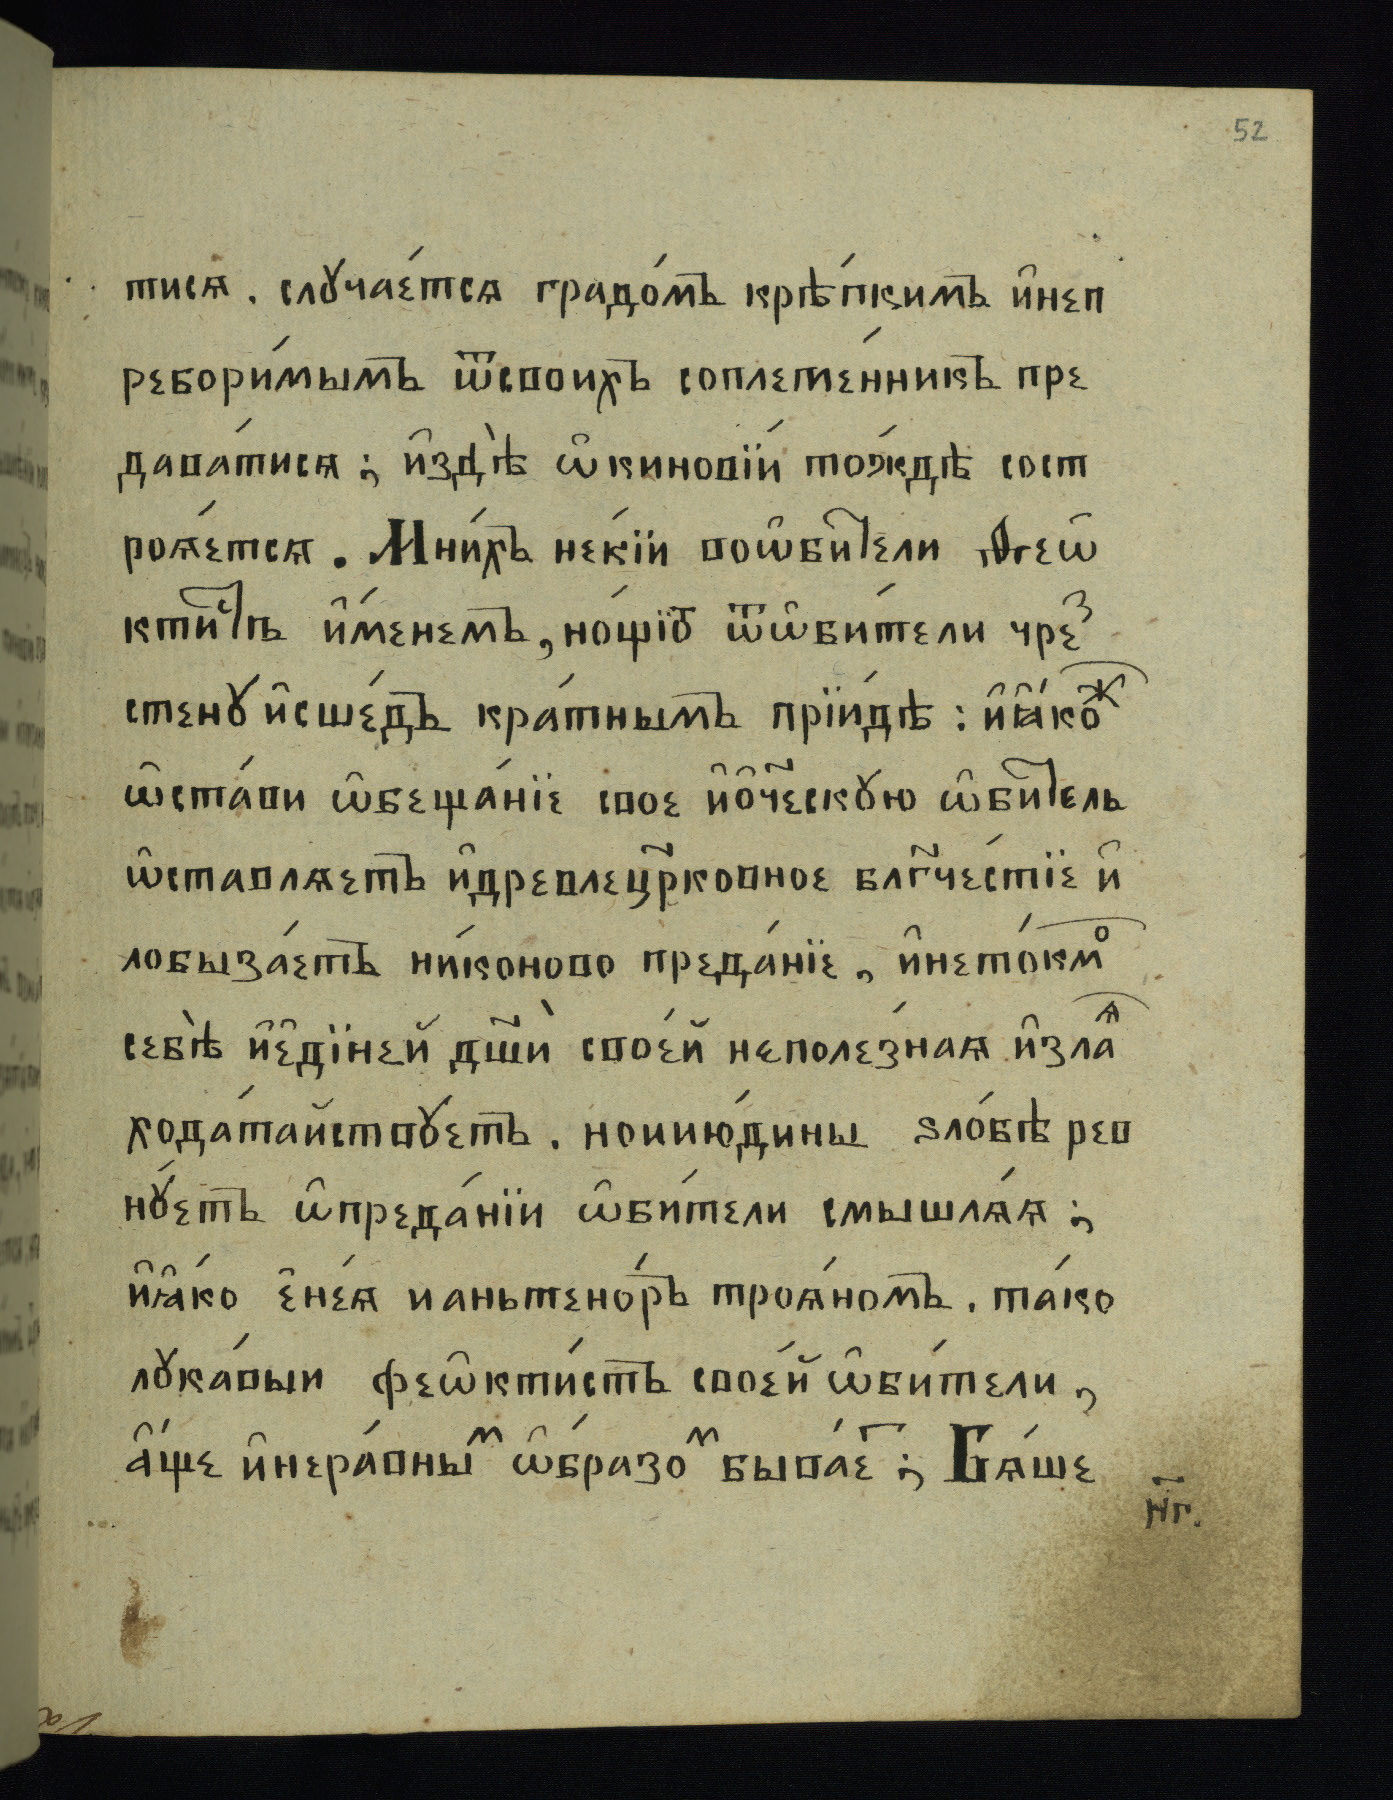 52
тисѧ . слꙋчае́тсѧ градо́мъ крѣ́пкимъ и҆неп
ребори́мымъ ѿсвоихъ соплеме́нникъ пре
дава́тисѧ ; и҆здѣ̀ ѡ҆кинові́и то́ждѣ сост
роѧ́етсѧ . Мни́хъ не́кїи воѡ҆би́тели Ѳеѡ҆
кти́стъ и҆́менемъ , но́щїю ѿѡ҆би́тели чреⷥ
стенꙋ̀ и҆сше́дъ кра́тнымъ прїи́дѣ : и҆ꙗ҆́коⷤ
ѡ҆ста́ви ѡ҆беща́нїе свое и҆ѻ҆҃ческꙋю ѡ҆би́тель
ѡ҆ставлѧетъ и҆древлецр҃ковное блг҃че́стїе и҆
лобыза́етъ ни́коново преда́нїе , и҆нето́кмⷪ
себѣ̀ и҆є҆ді́ней дш҃ѝ свое́й неполе́знаѧ и҆злаⷽ
хода́тайствꙋ́етъ . ноиию́дины ѕло́бѣ рев
нꙋ́етъ ѡ҆преда́нїи ѡ҆би́тели смышлѧ́ѧ ;
и҆ꙗ҆́ко є҆не́ѧ ианьтено́ръ троѧ́номъ . та́ко
лꙋка́выи феѡ҆кти́стъ свое́й ѡ҆би́тели ,
а҆́ще и҆нера́вныⷨ ѡ҆́бразоⷨ быва́еⷮ ; Бѧ́ше
н҃г.